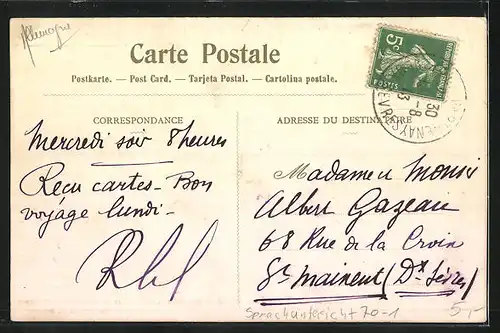 Allemagne
Carte Postale
Postkarte. — Post Card. — Tarjeta Postal. — Cartolina postale.
5c
POSTES
CORRESPONDANCE
ADRESSE DU DESTINATAIRE
30 -8
Mercredi soir 8 heures
Reçu cartes - Bon
voyage lundi -
Madame M Monsi
Albert Gazeau
68 Rue de la Croix
St Maixent (Dx Sèvres)
Sprachunterricht 70-1
5,-